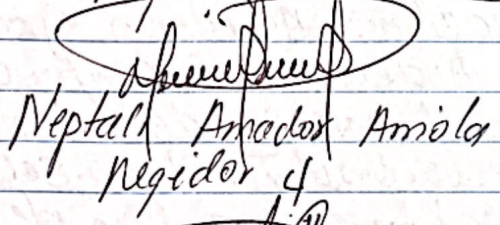 Neptali Amador Amola
Regidor 4